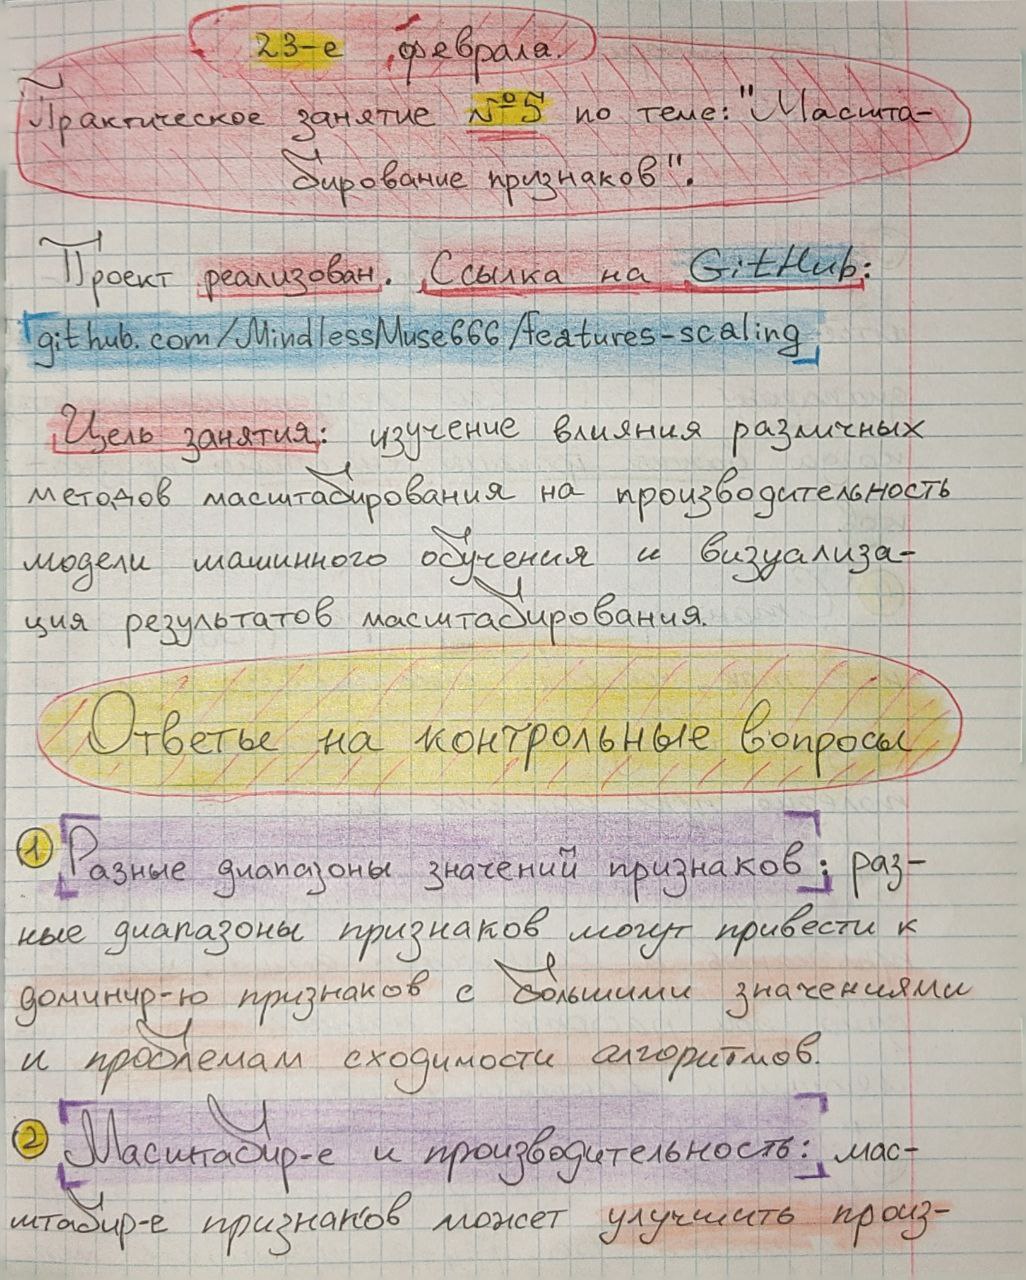 23-е февраля.
Практическое занятие №5 по теме: "Масшта-
бирование признаков".
Проект реализован. Ссылка на GitHub:
github.com/MindlessMuse666/features-scaling
Цель занятия: изучение влияния различных
методов масштабирования на производительность
модели машинного обучения и визуализа-
ция результатов масштабирования.
Ответы на контрольные вопросы
1 Разные диапазоны значений признаков: раз-
ные диапазоны признаков могут привести к
доминир-ю признаков с большими значениями
и проблемам сходимости алгоритмов.
2 Масштабир-е и производительность: мас-
штабир-е признаков может улучшить произ-